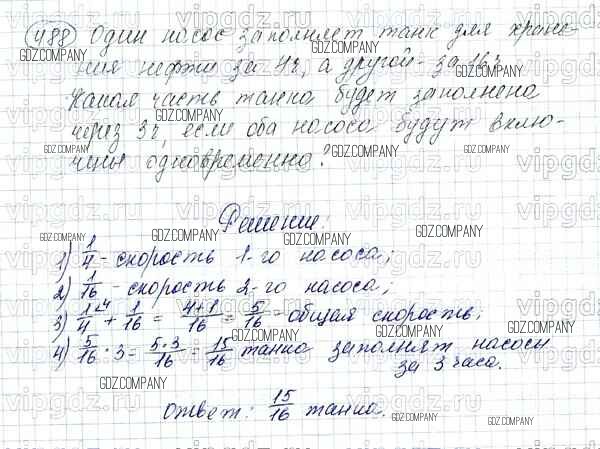 488 Один насос заполняет танк для хране-
ния нефти за 4ч, а другой - за 16ч
Какая часть танка будет заполнена
через 3ч, если оба насоса будут вклю-
чены одновременно?
Решение:
1) 1/4 - скорость 1-го насоса;
2) 1/16 - скорость 2-го насоса;
3) 1/4 + 1/16 = 4+1/16 = 5/16 - общая скорость;
4) 5/16 · 3 = 5·3/16 = 15/16 танка заполнят насосы
за 3 часа.
Ответ: 15/16 танка.
vipgdz.ru
GDZ.COMPANY